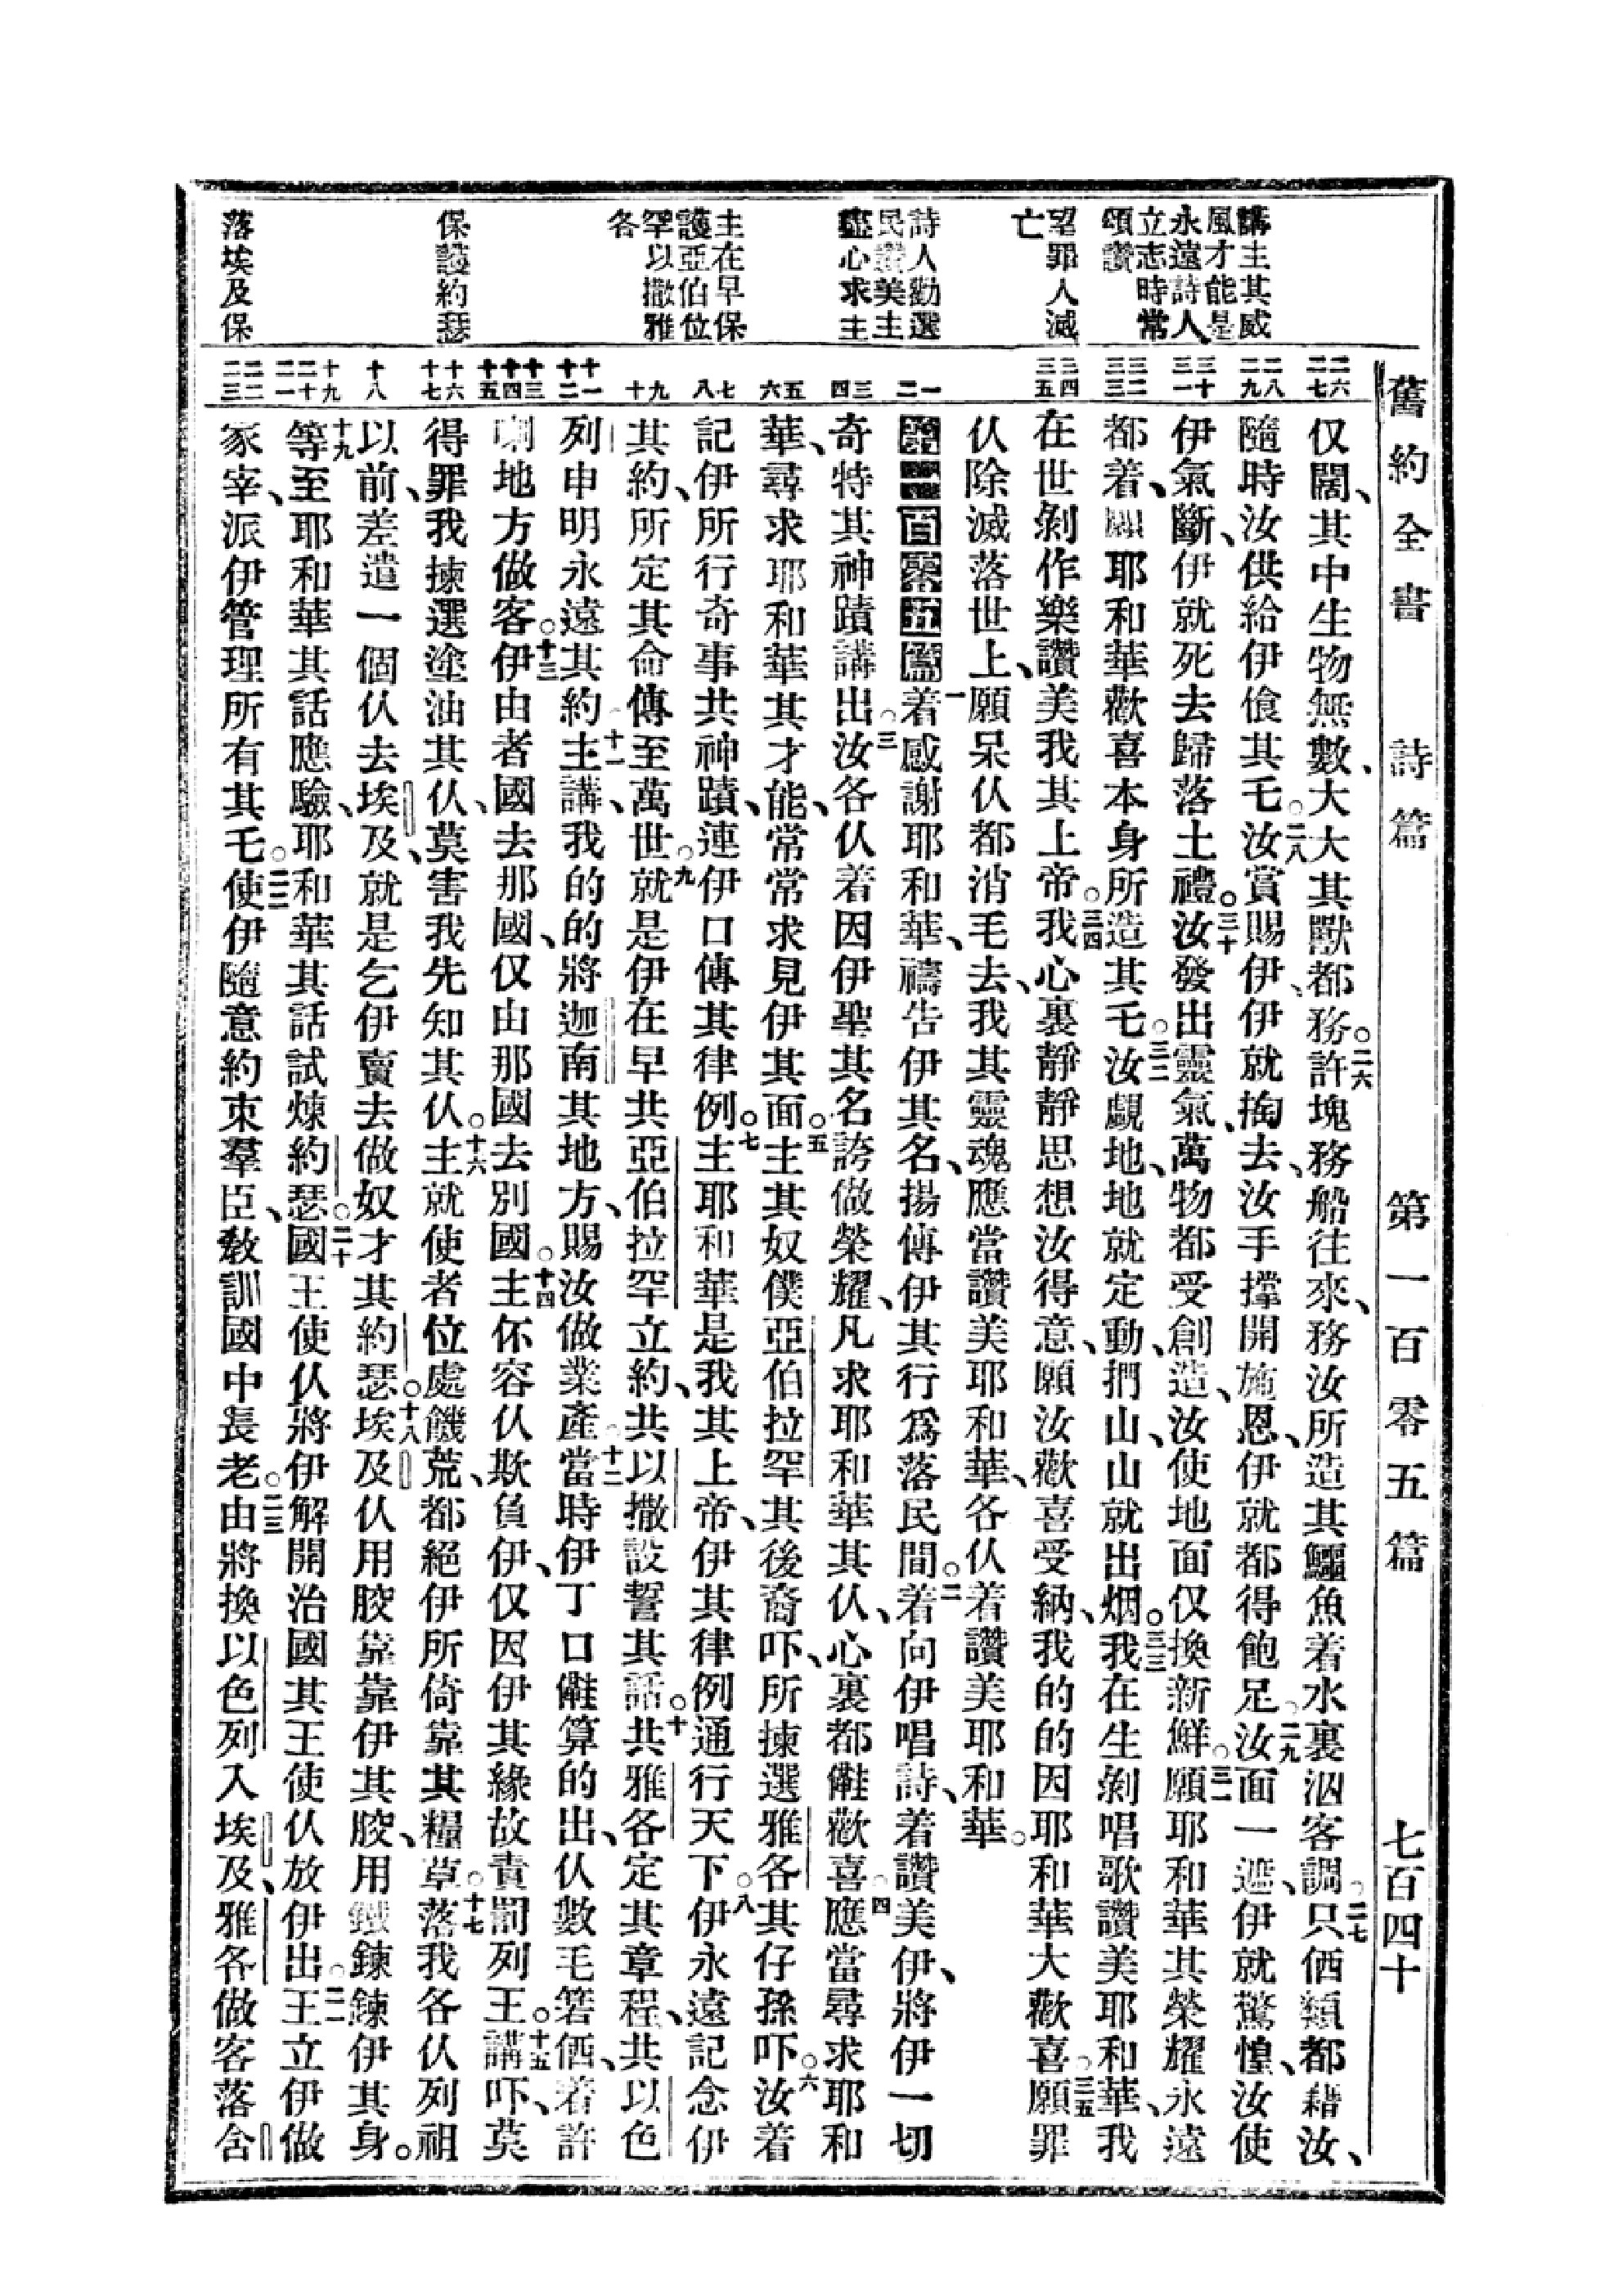 舊約全書 詩篇 第一百零五篇 七百四十
講主其威
風才能是
永遠詩人
立志時常
頌讚
望罪人滅
亡
詩人勸選
民讚美主
盡心求主
主在早保
護亞伯位
罕以撒雅
各
保護約瑟
落埃及保
二六 二七
二八 二九
三十 三一
三二 三三
三四 三五
一 二
三 四
五 六
七 八
九 十
十一 十二
十三 十四 十五
十六 十七
十八
十九 二十 二一
二二 二三
仅闊、其中生物無數、大大其獸都務。二六許塊務船往來、務汝所造其鱷魚着水裏泅客調。二七只佰類都藉汝、
隨時汝供給伊飡其乇。二八汝賞賜伊、伊就掏去、汝手撑開施恩、伊就都得飽足。二九汝面一遮、伊就驚惶、汝使
伊氣斷、伊就死去歸落土禮。三十汝發出靈氣、萬物都受創造、汝使地面仅換新鮮。三一願耶和華其榮耀永遠
都着、願耶和華歡喜本身所造其乇。三二汝覷地、地就定動、捫山、山就出烟。三三我在生剝唱歌讚美耶和華、我
在世剝作樂讚美我其上帝。三四我心裏靜靜思想汝得意、願汝歡喜受納、我的的因耶和華大歡喜。三五願罪
仈除滅落世上、願呆仈都消毛去、我其靈魂應當讚美耶和華、各仈着讚美耶和華。
第一百零五篇 一着感謝耶和華、禱告伊其名、揚傳伊其行爲落民間。二着向伊唱詩、着讚美伊、將伊一切
奇特其神蹟講出。三汝各仈着因伊聖其名誇做榮耀、凡求耶和華其仈、心裏都儺歡喜。四應當尋求耶和
華、尋求耶和華其才能、常常求見伊其面。五主其奴僕亞伯拉罕其後裔吓、所揀選雅各其仔孫吓。六汝着
記伊所行奇事共神蹟、連伊口傳其律例。七主耶和華是我其上帝、伊其律例通行天下。八伊永遠記念伊
其約、所定其命傳至萬世。九就是伊在早共亞伯拉罕立約、共以撒設誓其話。十共雅各定其章程、共以色
列申明永遠其約。十一主講、我的的將迦南其地方、賜汝做業產。十二當時伊丁口儺算的出、仈數毛箬佰、着許
塊地方做客。十三伊由者國去那國、仅由那國去別國。十四主伓容仈欺負伊、仅因伊其緣故責罰列王。十五講吓、莫
得罪我揀選塗油其仈、莫害我先知其仈。十六主就使者位處饑荒、都絕伊所倚靠其糧草。十七落我各仈列祖
以前、差遣一個仈去埃及、就是乞伊賣去做奴才其約瑟。十八埃及仈用骹靠靠伊其骹、用鐵鍊鍊伊其身。
十九等至耶和華其話應驗、耶和華其話試煉約瑟。二十國王使仈將伊解開、治國其王使仈放伊出。二一王立伊做
冢宰、派伊管理所有其乇。二二使伊隨意約束羣臣、敎訓國中長老。二三由將換以色列入埃及、雅各做客落含